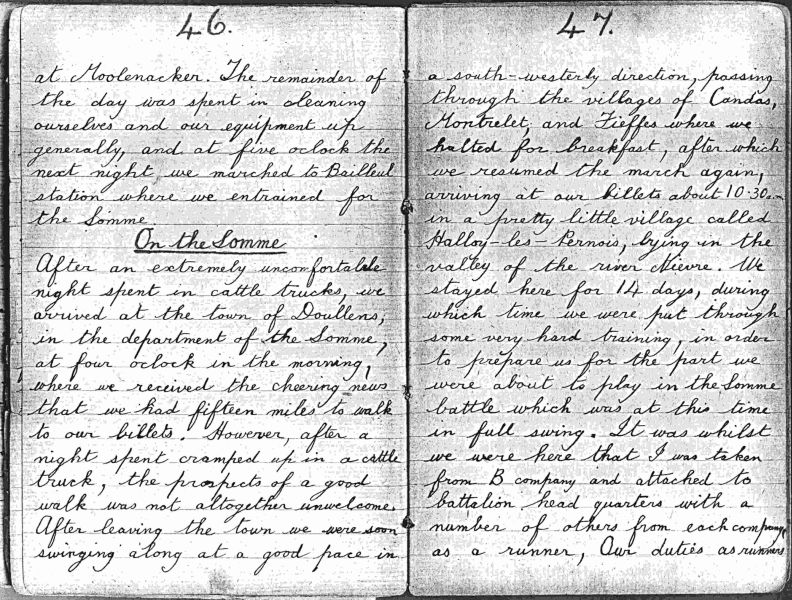 46.
at Moolenacker. The remainder of
the day was spent in cleaning
ourselves and our equipment up
generally, and at five oclock the
next night, we marched to Bailleul
station where we entrained for
the Somme
On the Somme
After an extremely uncomfortable
night spent in cattle trucks, we
arrived at the town of Doullens,
in the department of the Somme,
at four oclock in the morning,
where we received the cheering news
that we had fifteen miles to walk
to our billets. However, after a
night spent cramped up in a cattle
truck, the prospects of a good
walk was not altogether unwelcome.
After leaving the town we were soon
swinging along at a good pace in
47.
a south-westerly direction, passing
through the villages of Candas,
Montrelet, and Fieffes where we
halted for breakfast, after which
we resumed the march again,
arriving at our billets about 10.30am
in a pretty little village called
Halloy-les-Pernois, lying in the
valley of the river Nievre. We
stayed here for 14 days, during
which time we were put through
some very hard training, in order
to prepare us for the part we
were about to play in the Somme
battle which was at this time
in full swing. It was whilst
we were here that I was taken
from B company and attached to
battalion head quarters with a
number of others from each company,
as a runner, Our duties as runners